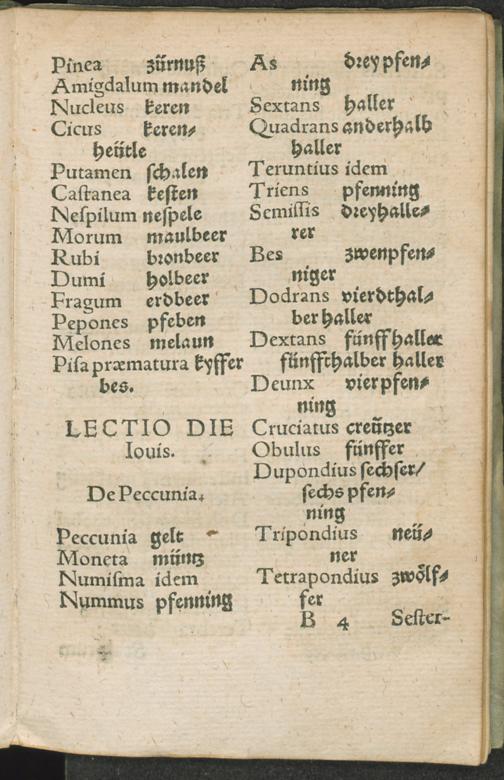 Pinea zürnuß
Amigdalum mandel
Nucleus keren
Cicus keren⸗
heütle
Putamen ſchalen
Caſtanea keſten
Neſpilum neſpele
Morum maulbeer
Rubi bronbeer
Dumi holbeer
Fragum erdbeer
Pepones pfeben
Melones melaun
Piſa præmatura kyffer
bes.
LECTIO DIE
Iouis.
De Peccunia.
Peccunia gelt
Moneta müntz
Numiſma idem
Nummus pfenning
As drey pfen⸗
ning
Sextans haller
Quadrans anderhalb
haller
Teruntius idem
Triens pfenning
Semiſſis dreyhalle⸗
rer
Bes zwenpfen⸗
niger
Dodrans vierdthal⸗
ber haller
Dextans fünff haller
fünffthalber haller
Deunx vier pfen⸗
ning
Cruciatus creützer
Obulus fünffer
Dupondius ſechſer/
ſechs pfen⸗
ning
Tripondius neü⸗
ner
Tetrapondius zwölf⸗
fer
B 4 Seſter-